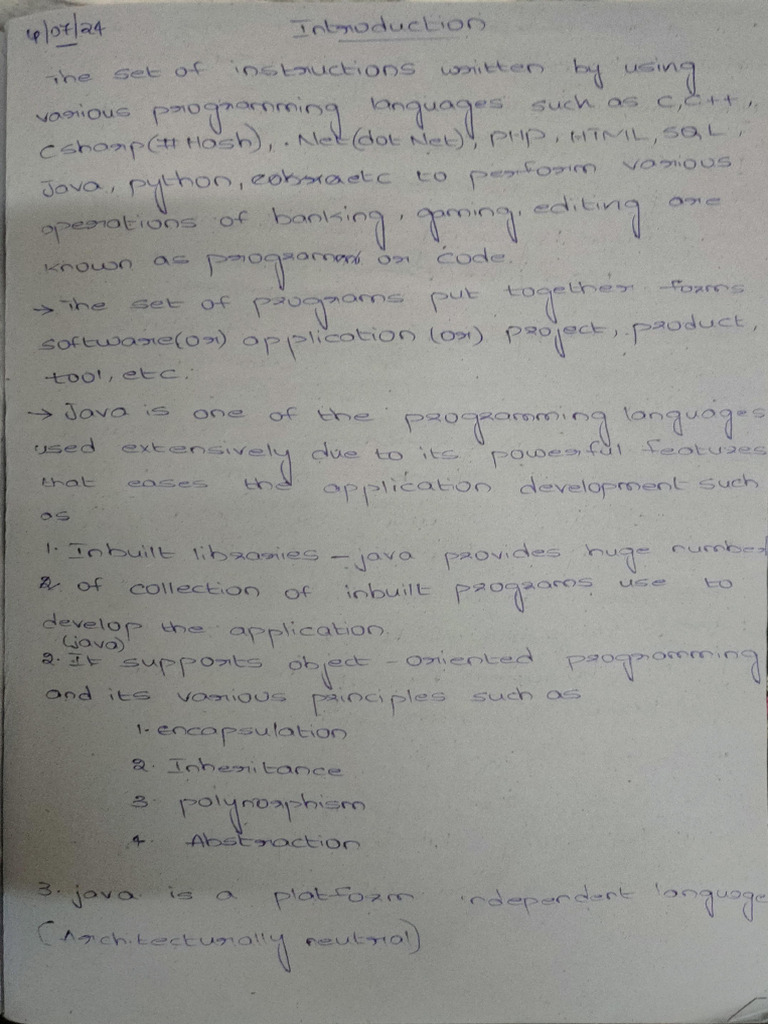 4/07/24 Introduction
The set of instructions written by using
various programming languages such as C, C++,
csharp(# Hash), .Net(dot Net), PHP, HTML, SQL,
Java, python, etc to perform various
operations of banking, gaming, editing are
known as program or code.
→ The set of programs put together forms
software(or) application (or) project, product,
tool, etc.
→ Java is one of the programming languages
used extensively due to its powerful features
that eases the application development such
as
1. Inbuilt libraries - java provides huge number
2. of collection of inbuilt programs use to
develop the application.
(java)
2. It supports object - oriented programming
and its various principles such as
1. encapsulation
2. Inheritance
3. polymorphism
4. Abstraction
3. java is a platform independent language
(Architecturally neutral)